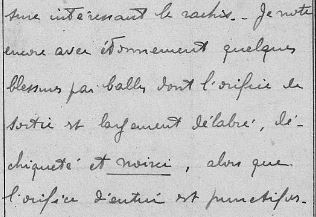 sure intéressant le rachis. - Je note
encore avec étonnement quelques
blessures par balles dont l'orifice de
sortie est largement délabré, dé-
chiqueté et noirci, alors que
l'orifice d'entrée est punctifor-